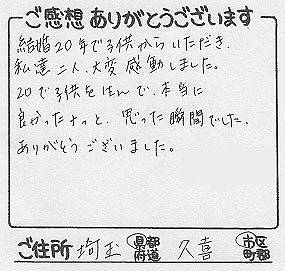 ご感想 ありがとうございます
結婚20年で子供からいただき、
私達二人、大変感動しました。
20で子供を住んで、本当に
良かったナっと、思った瞬間でした。
ありがとうございました。
ご住所 埼玉 都道府県 久喜 市区町郡